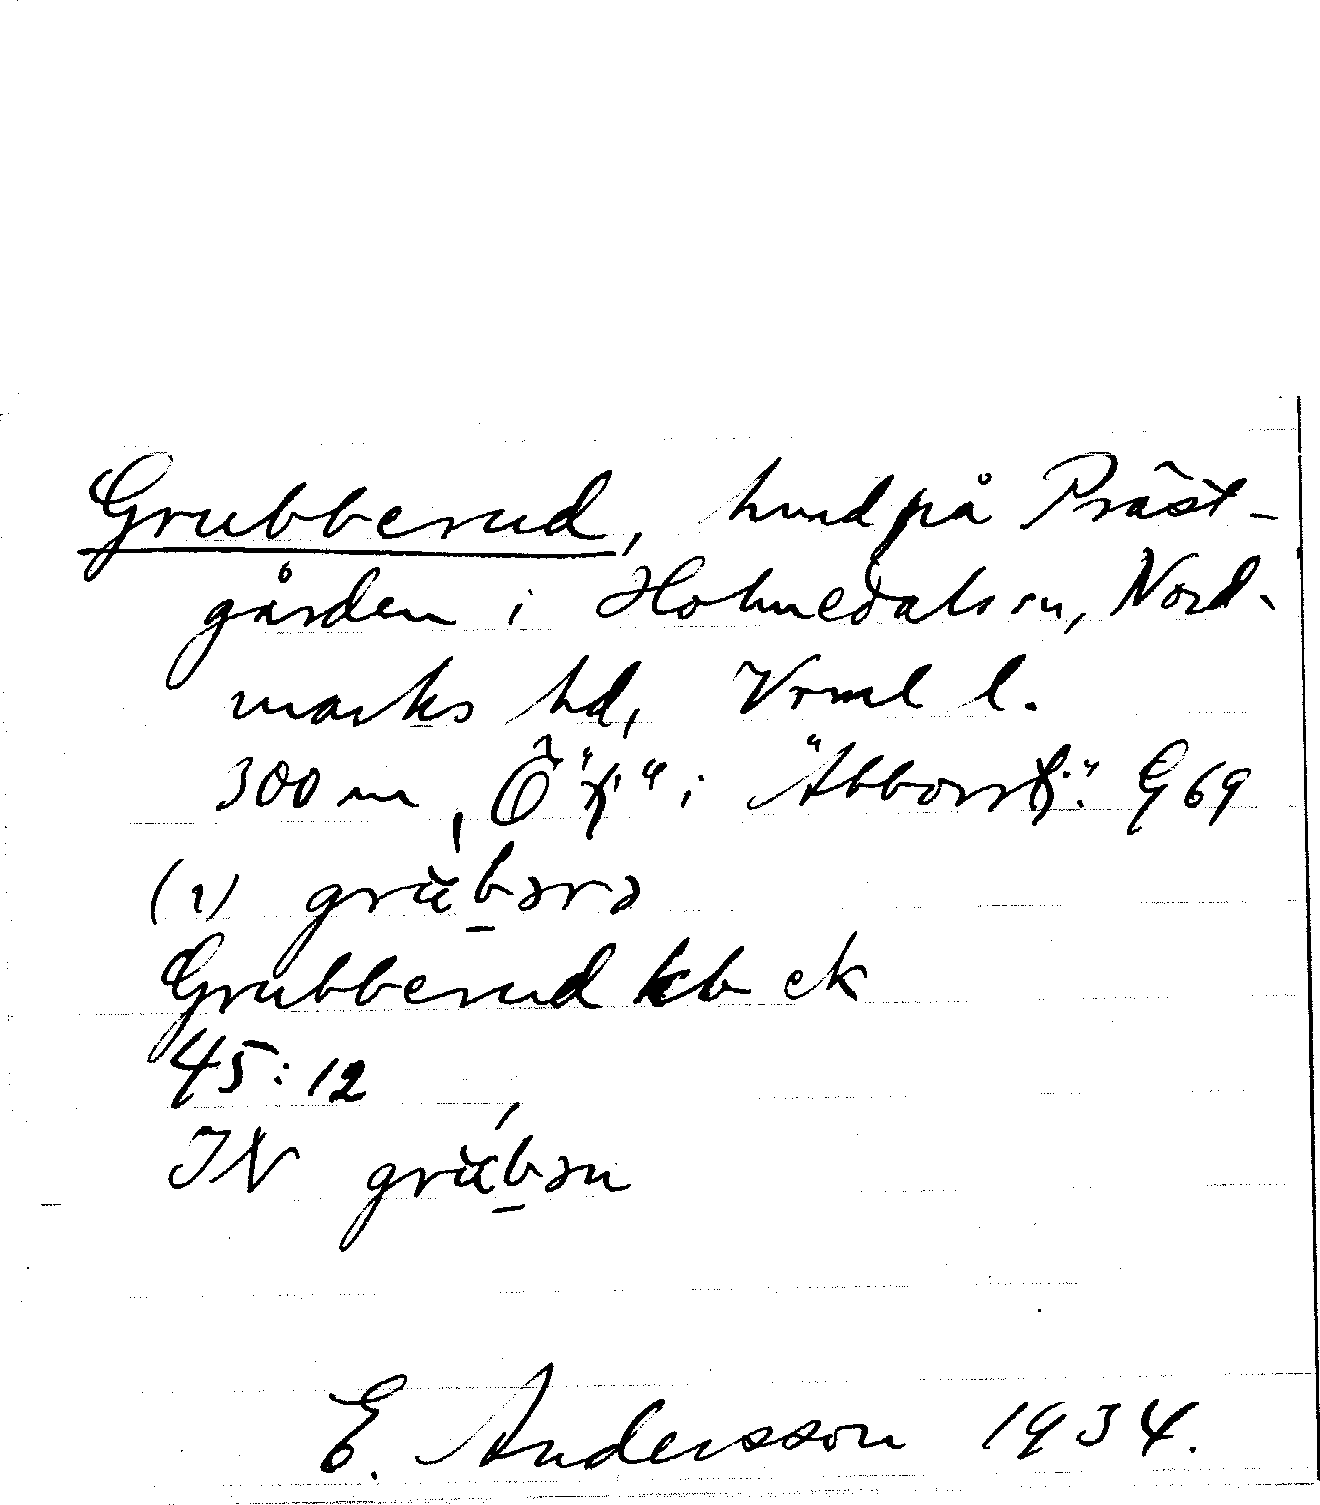 Grubberud, hmd på Präst-
gården i Holmedals sn, Nord-
marks hd, Vrml l.
300 m, Ö "tj" i "Abborrtj." G 69
(i) grùbərə
Grubberud kb ek
45:12
IN grùbən
E. Andersson 1934.